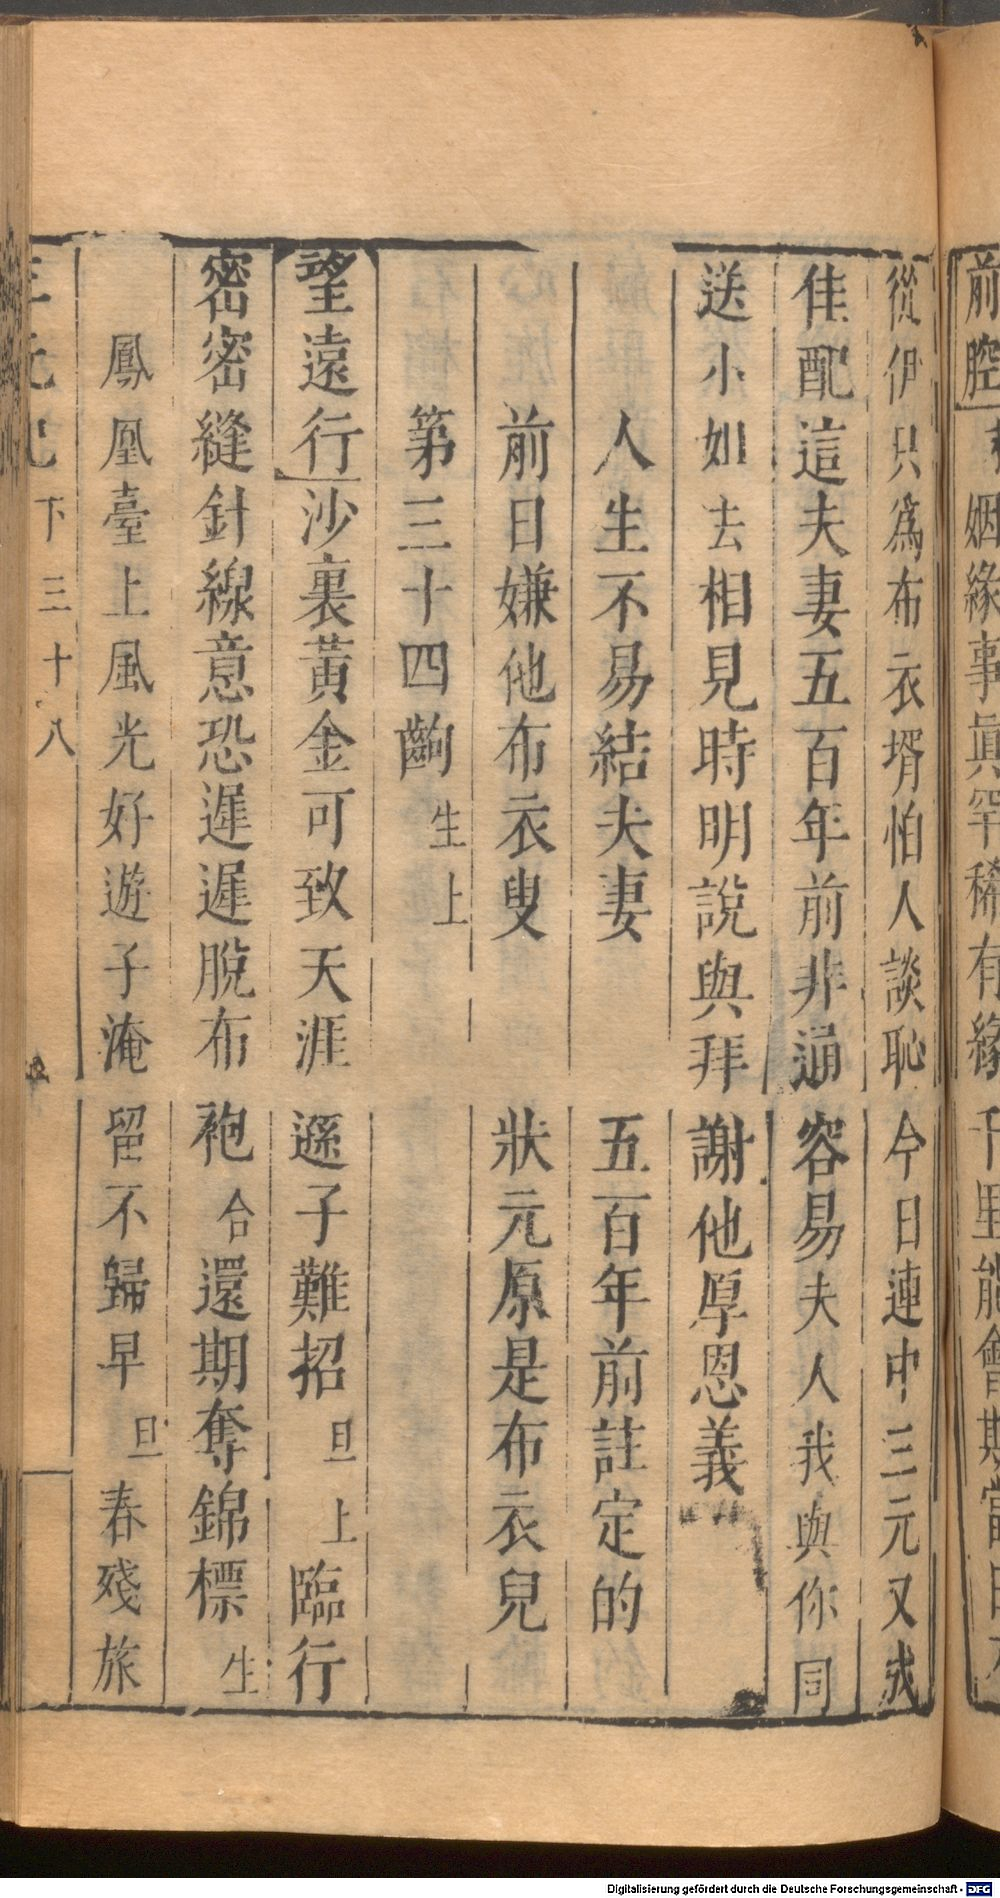 前腔
姻緣事眞罕稀有緣千里能會期當日
從伊只爲布衣壻怕人談恥今日連中三元又成
佳配這夫妻五百年前非通容易夫人我與你同
送小姐去相見時明說與拜謝他厚恩義
人生不易結夫妻　五百年前註定的
前日嫌他布衣叟　狀元原是布衣兒
第三十四齣 生上
望遠行 沙裏黃金可致天涯遜子難招 旦上 臨行
密密縫針線意恐遲遲脫布袍 合 還期奪錦標 生
鳳凰臺上風光好遊子淹留不歸早 旦 春殘旅
三元記 下 三十八
Digitalisierung gefördert durch die Deutsche Forschungsgemeinschaft - DFG